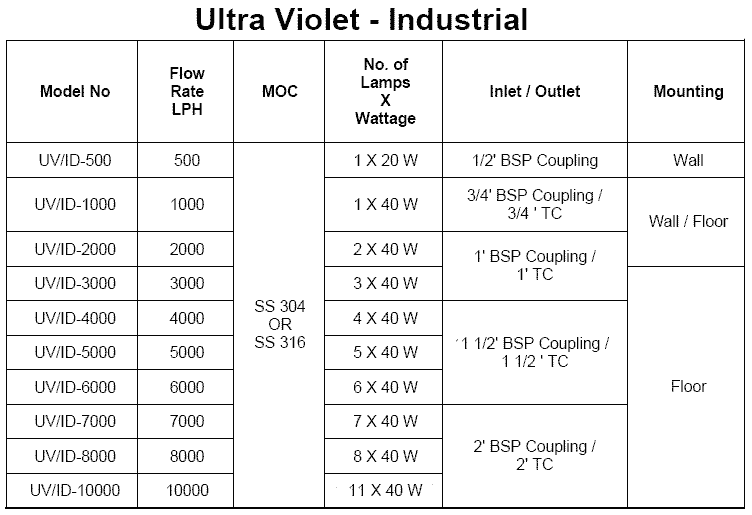 Ultra Violet - Industrial
Model No
Flow
Rate
LPH
MOC
No. of
Lamps
X
Wattage
Inlet / Outlet
Mounting
UV/ID-500
500
SS 304
OR
SS 316
1 X 20 W
1/2' BSP Coupling
Wall
UV/ID-1000
1000
1 X 40 W
3/4' BSP Coupling /
3/4 ' TC
Wall / Floor
UV/ID-2000
2000
2 X 40 W
1' BSP Coupling /
1' TC
UV/ID-3000
3000
3 X 40 W
Floor
UV/ID-4000
4000
4 X 40 W
1 1/2' BSP Coupling /
1 1/2 ' TC
UV/ID-5000
5000
5 X 40 W
UV/ID-6000
6000
6 X 40 W
UV/ID-7000
7000
7 X 40 W
2' BSP Coupling /
2' TC
UV/ID-8000
8000
8 X 40 W
UV/ID-10000
10000
11 X 40 W